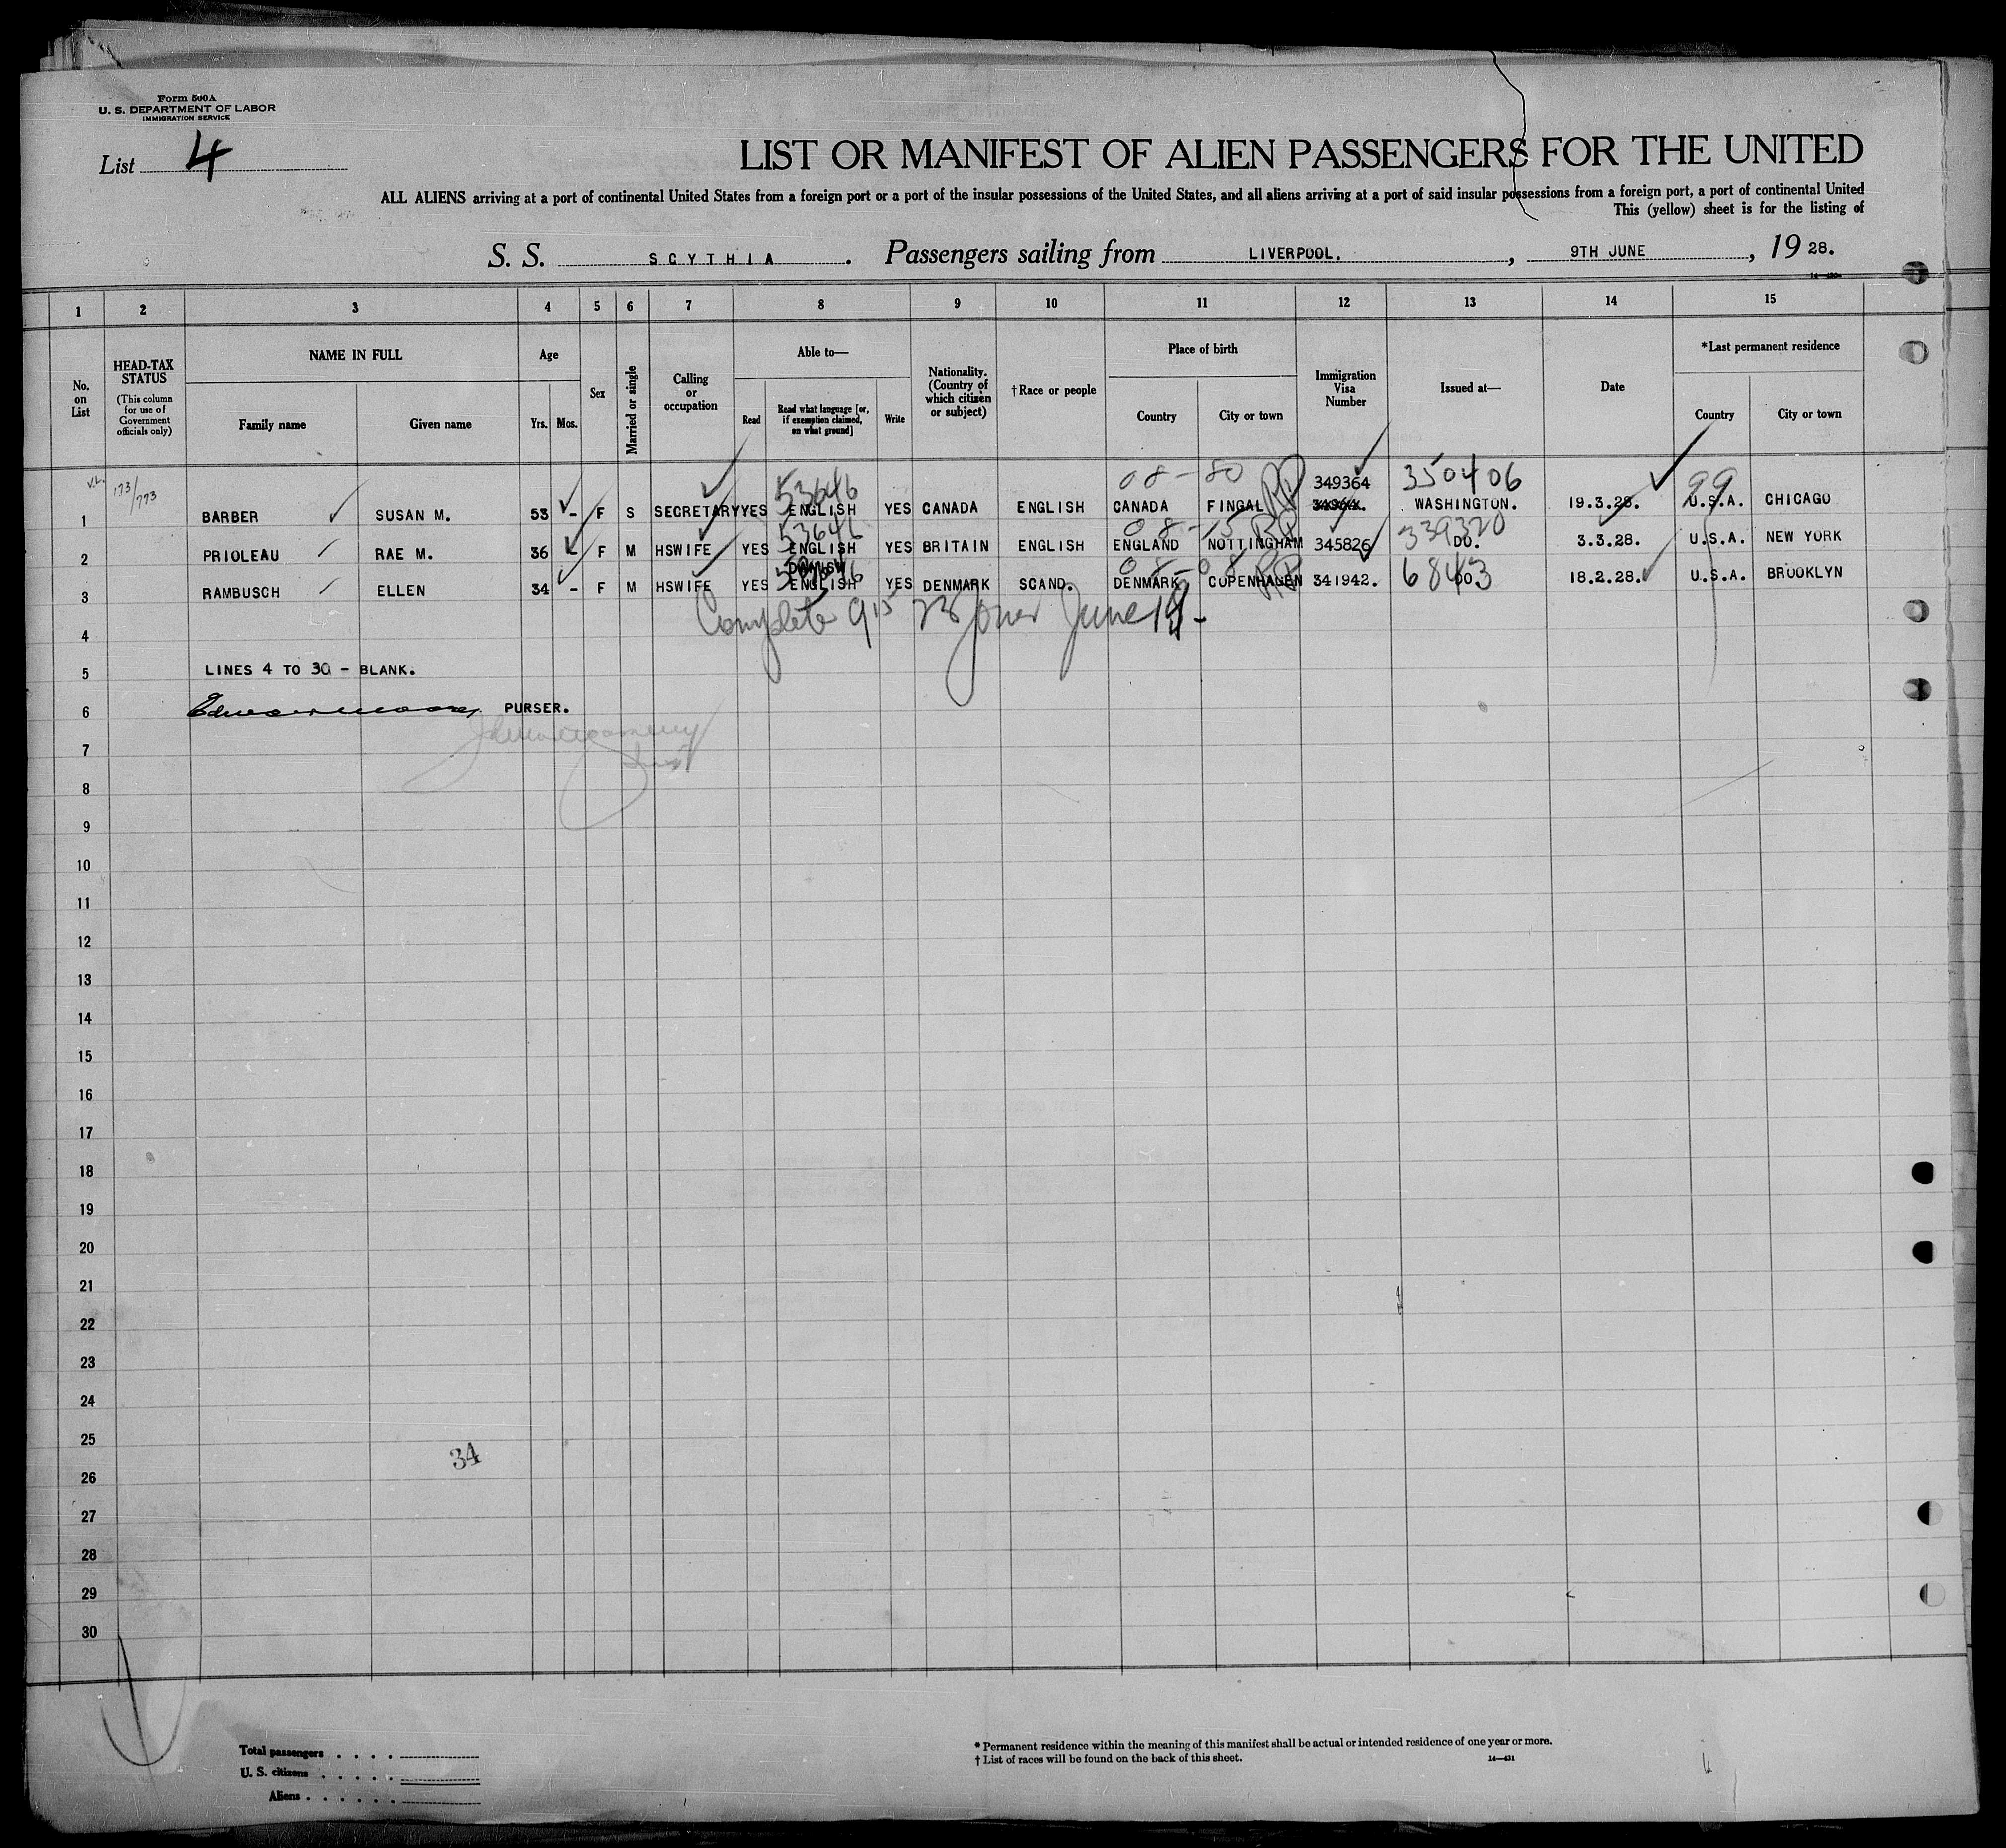 Form 500A
U. S. DEPARTMENT OF LABOR
IMMIGRATION SERVICE
List 4
LIST OR MANIFEST OF ALIEN PASSENGERS FOR THE UNITED
ALL ALIENS arriving at a port of continental United States from a foreign port or a port of the insular possessions of the United States, and all aliens arriving at a port of said insular possessions from a foreign port, a port of continental United
This (yellow) sheet is for the listing of
S. S. SCYTHIA. Passengers sailing from LIVERPOOL. , 9TH JUNE , 19 28.
1 2 3 4 5 6 7 8 9 10 11 12 13 14 15
No. on List
HEAD-TAX STATUS
(This column for use of Government officials only)
NAME IN FULL
Family name
Given name
Age
Yrs. Mos.
Sex
Married or single
Calling or occupation
Able to—
Read
Read what language [or, if exemption claimed, on what ground]
Write
Nationality. (Country of which citizen or subject)
†Race or people
Place of birth
Country
City or town
Immigration Visa Number
Issued at—
Date
*Last permanent residence
Country
City or town
173/773 53646 08-80 RP 349364 350406 99
1 BARBER SUSAN M. 53 - F S SECRETARY YES ENGLISH YES CANADA ENGLISH CANADA FINGAL WASHINGTON. 19.3.28. U.S.A. CHICAGO
53646 08-15 RP 339320
2 PRIOLEAU RAE M. 36 F M HSWIFE YES ENGLISH YES BRITAIN ENGLISH ENGLAND NOTTINGHAM 345826 DO. 3.3.28. U.S.A. NEW YORK
DANISH 08-08 RP 6843
3 RAMBUSCH ELLEN 34 - F M HSWIFE YES ENGLISH YES DENMARK SCAND. DENMARK COPENHAGEN 341942. DO 18.2.28. U.S.A. BROOKLYN
Complete 9 15 Jones June 18-
4
5 LINES 4 TO 30 - BLANK.
6 PURSER.
7
8
9
10
11
12
13
14
15
16
17
18
19
20
21
22
23
24
25
34
26
27
28
29
30
Total passengers . . . .
U. S. citizens . . . . .
Aliens . . . . . .
* Permanent residence within the meaning of this manifest shall be actual or intended residence of one year or more.
† List of races will be found on the back of this sheet.
14—431